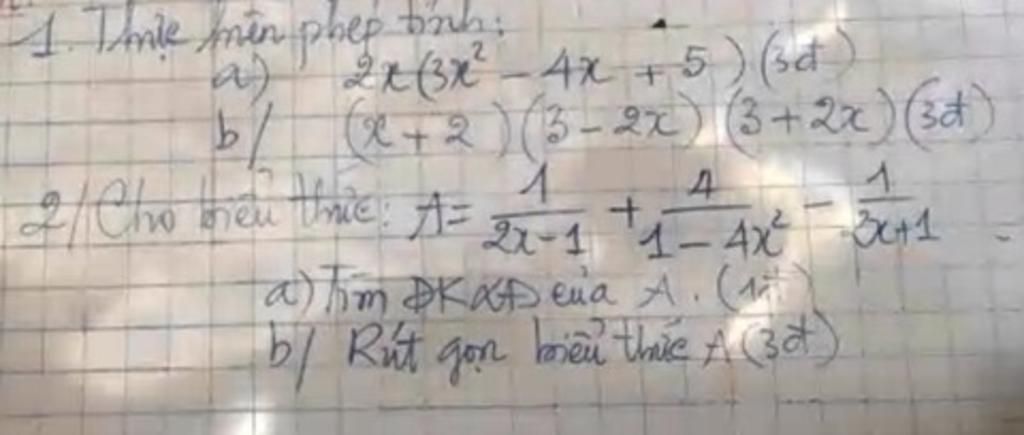 1. Thực hiện phép tính:
a) 2x(3x² - 4x + 5) (3đ)
b/ (x + 2)(3 - 2x)(3 + 2x) (3đ)
2/ Cho biểu thức: A = 1/(2x-1) + 4/(1 - 4x²) - 1/(2x+1)
a) Tìm ĐKXĐ của A. (1đ)
b/ Rút gọn biểu thức A (3đ)